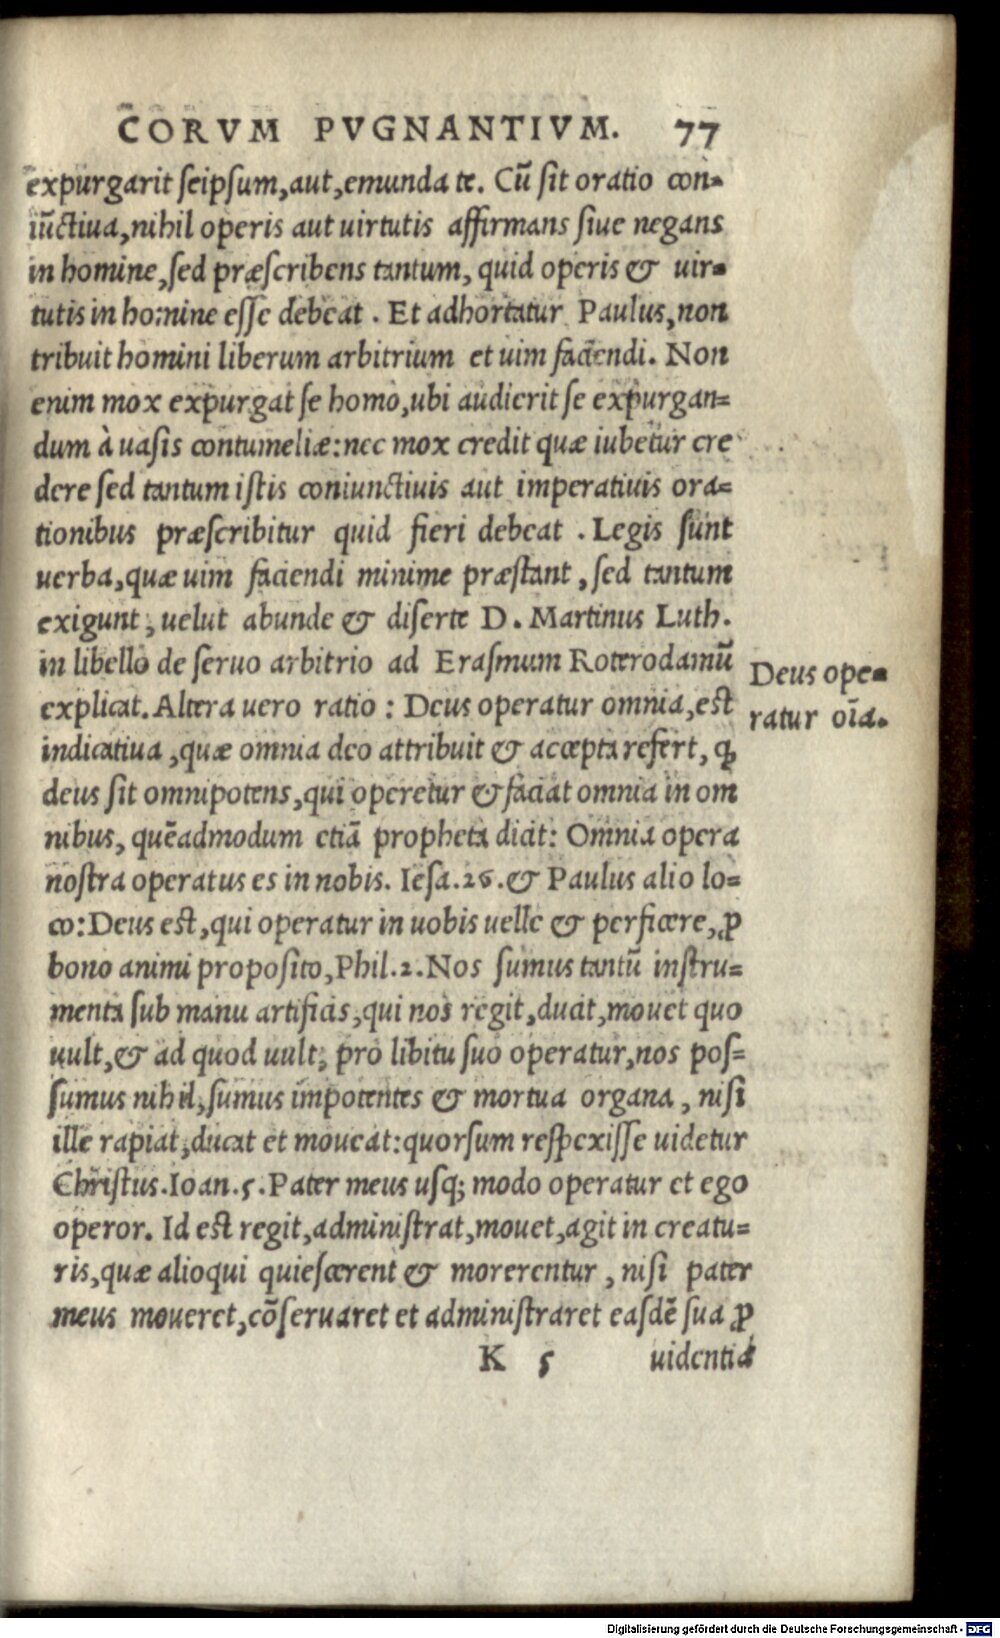 CORVM PVGNANTIVM. 77
expurgarit seipsum, aut, emunda te. Cū sit oratio con-
iūctiua, nihil operis aut uirtutis affirmans siue negans
in homine, sed præscribens tantum, quid operis & uir-
tutis in homine esse debeat. Et adhortatur Paulus, non
tribuit homini liberum arbitrium et uim faciendi. Non
enim mox expurgat se homo, ubi audierit se expurgan-
dum à uasis contumeliæ: nec mox credit quæ iubetur cre
dere sed tantum istis coniunctiuis aut imperatiuis ora-
tionibus præscribitur quid fieri debeat. Legis sunt
uerba, quæ uim faciendi minime præstant, sed tantum
exigunt, uelut abunde & diserte D. Martinus Luth.
in libello de seruo arbitrio ad Erasmum Roterodamū
explicat. Altera uero ratio: Deus operatur omnia, est
indicatiua, quæ omnia deo attribuit & accepta refert, ꝙ
deus sit omnipotens, qui operetur & faciat omnia in om
nibus, quēadmodum etiā propheta dicit: Omnia opera
nostra operatus es in nobis. Iesa. 26. & Paulus alio lo-
co: Deus est, qui operatur in uobis uelle & perficere, ꝓ
bono animi proposito, Phil. 2. Nos sumus tantū instru-
menta sub manu artificis, qui nos regit, ducit, mouet quo
uult, & ad quod uult, pro libitu suo operatur, nos pos-
sumus nihil, sumus impotentes & mortua organa, nisi
ille rapiat, ducat et moueat: quorsum respexisse uidetur
Christus. Ioan. 5. Pater meus usq; modo operatur et ego
operor. Id est regit, administrat, mouet, agit in creatu-
ris, quæ alioqui quiescerent & morerentur, nisi pater
meus moueret, cōseruaret et administraret easdē sua ꝓ
K 5 uidentia
Deus ope-
ratur oīa.
Digitalisierung gefördert durch die Deutsche Forschungsgemeinschaft - DFG